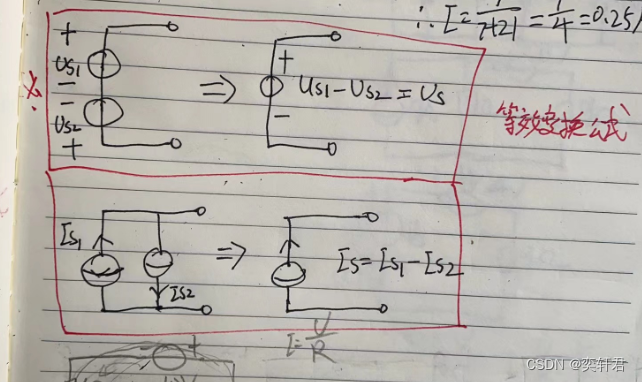 ∴ I = 7/7+21 = 1/4 = 0.25A
+
US1
−
−
US2
+
⇒
+
US1−US2=US
−
等效变换公式
IS1
IS2
⇒
IS=IS1−IS2
I=U/R
+
CSDN @奕轩君